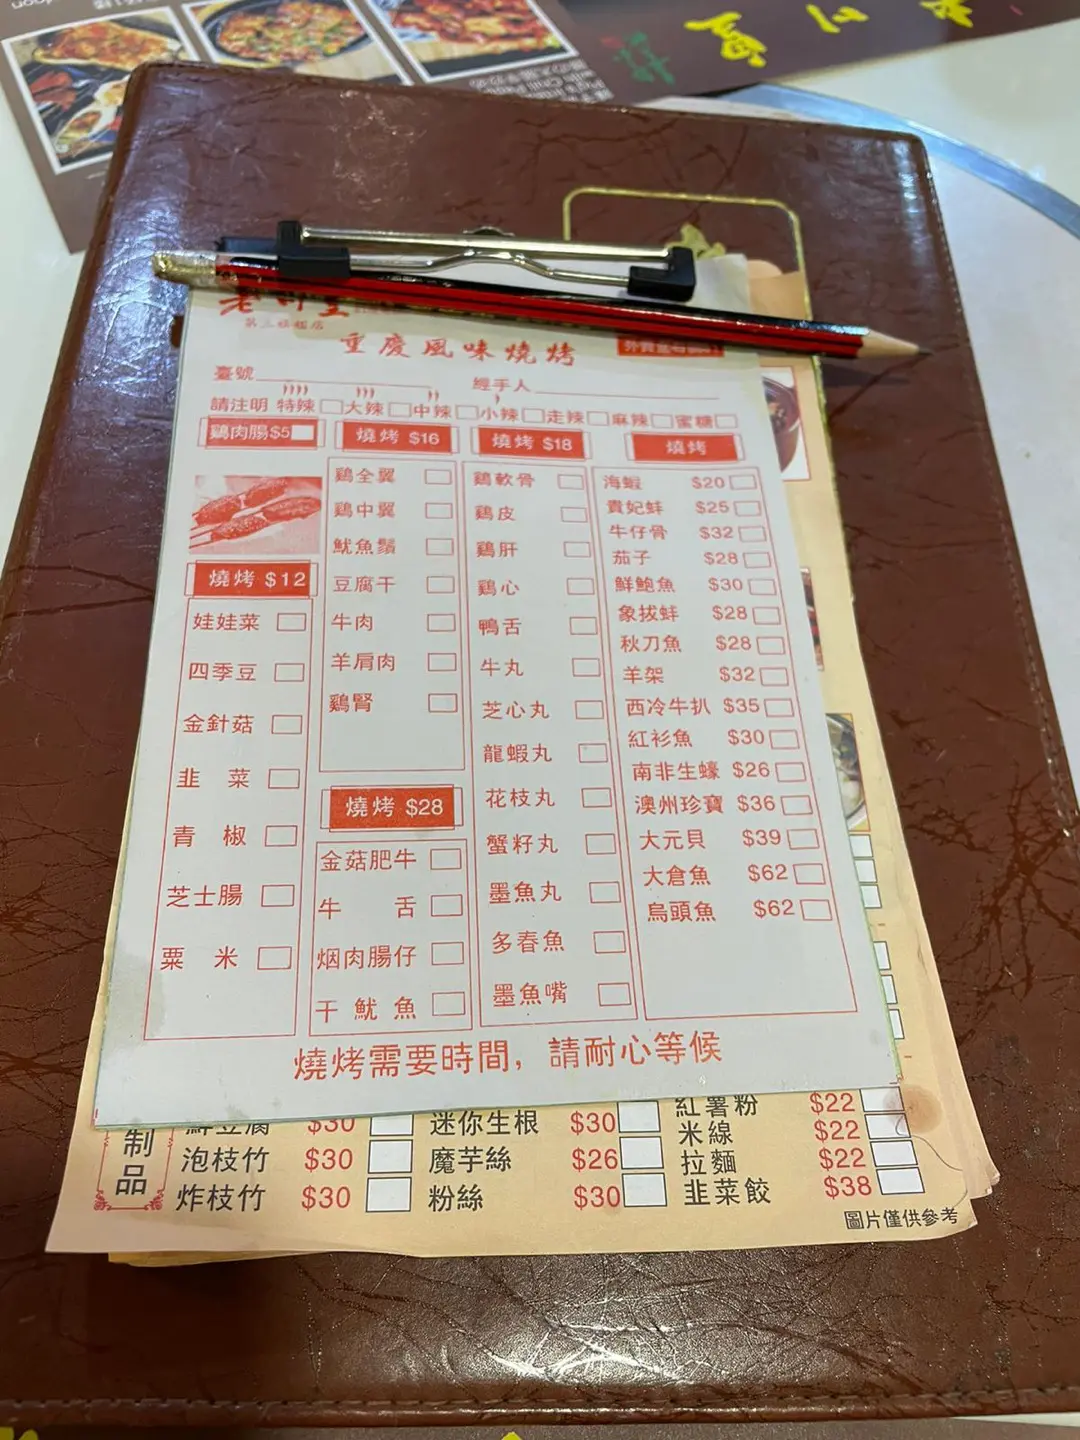 第三姐姐店
重慶風味燒烤
臺號 經手人
請注明 特辣 大辣 中辣 小辣 走辣 麻辣 蜜糖
鷄肉腸$5
燒烤 $12
娃娃菜
四季豆
金針菇
韭 菜
青 椒
芝士腸
粟 米
燒烤 $16
鷄全翼
鷄中翼
魷魚鬚
豆腐干
牛肉
羊肩肉
鷄腎
燒烤 $28
金菇肥牛
牛 舌
烟肉腸仔
干魷魚
燒烤 $18
鷄軟骨
鷄皮
鷄肝
鷄心
鴨舌
牛丸
芝心丸
龍蝦丸
花枝丸
蟹籽丸
墨魚丸
多春魚
墨魚嘴
燒烤
海蝦 $20
貴妃蚌 $25
牛仔骨 $32
茄子 $28
鮮鮑魚 $30
象拔蚌 $28
秋刀魚 $28
羊架 $32
西冷牛扒 $35
紅衫魚 $30
南非生蠔 $26
澳州珍寶 $36
大元貝 $39
大倉魚 $62
烏頭魚 $62
燒烤需要時間，請耐心等候
制品
鮮豆腐 $30
泡枝竹 $30
炸枝竹 $30
迷你生根 $30
魔芋絲 $26
粉絲 $30
紅薯粉 $22
米線 $22
拉麵 $22
韭菜餃 $38
圖片僅供參考